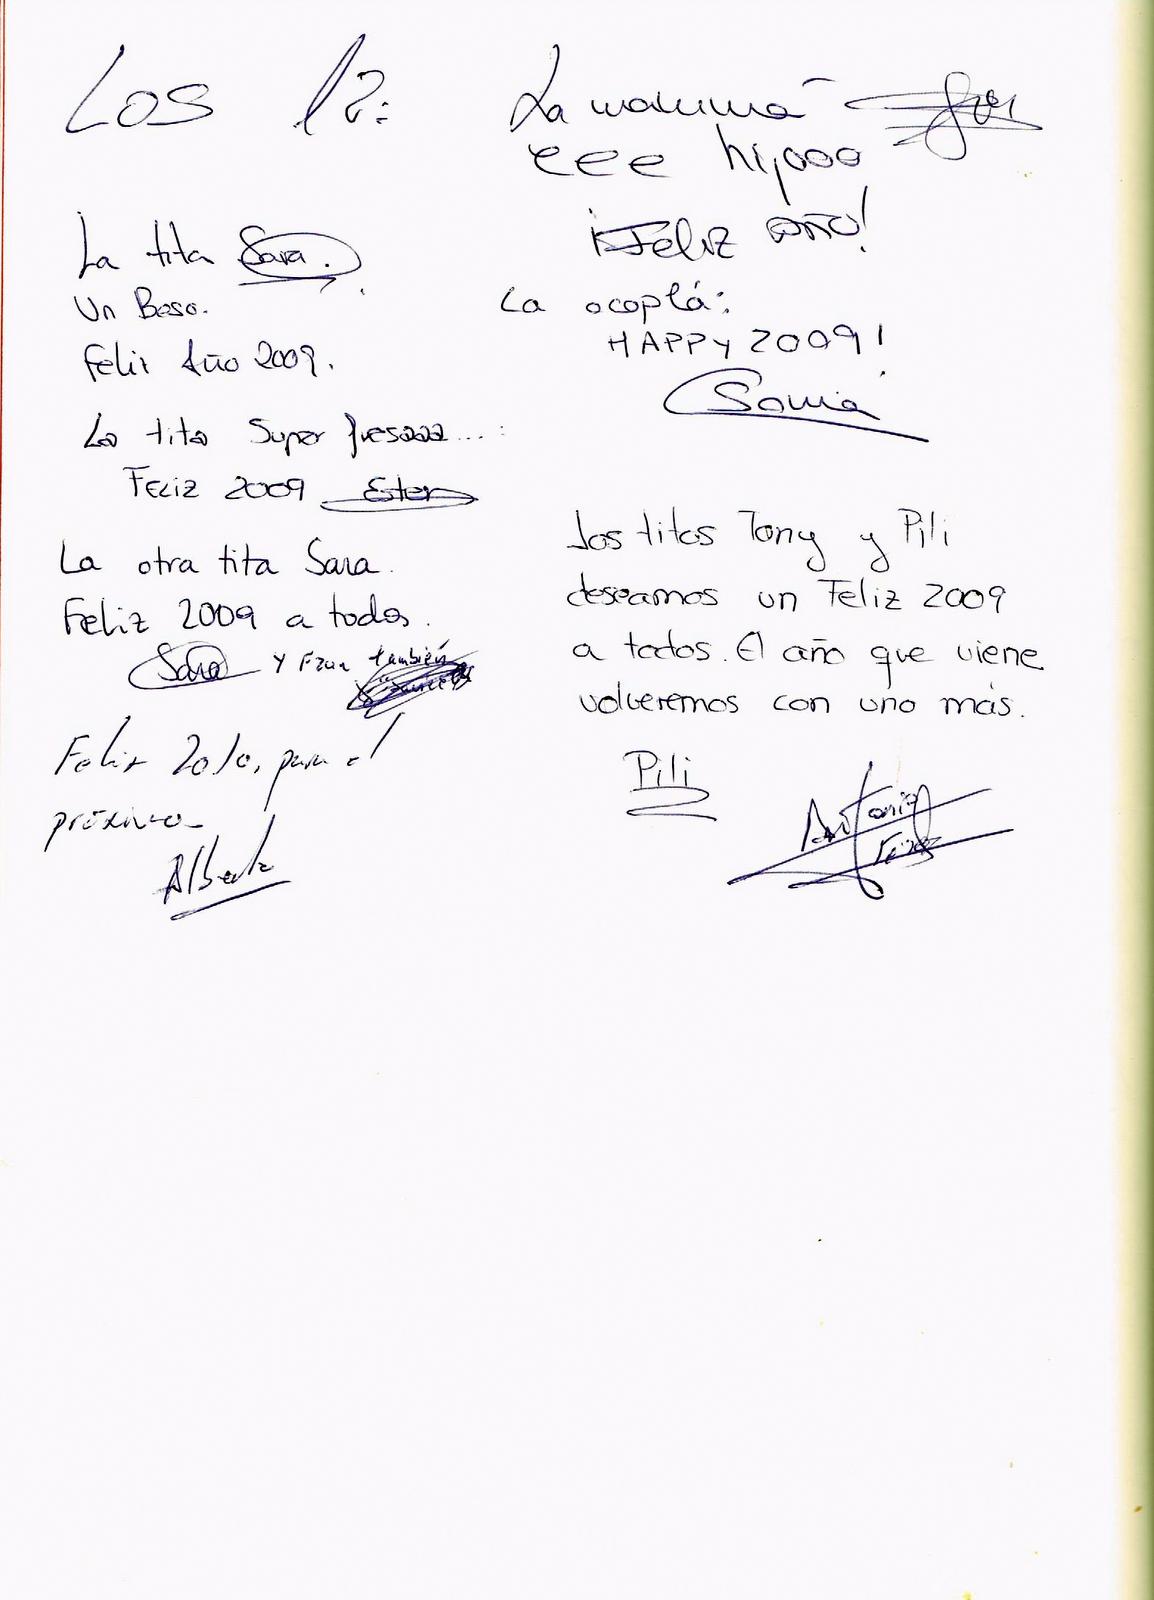 Los 12:
La tita Sara.
Un Beso.
Feliz Año 2009.
La tita Super fresaaa...:
Feliz 2009 Ester
La otra tita Sara.
Feliz 2009 a todos.
Sara Y Fran también
Feliz 2010, para el
próximo
Alberto
La mamma
eee hijooo
¡Feliz año!
La acoplá:
HAPPY 2009!
Sonia
Los titos Tony y Pili
deseamos un Feliz 2009
a todos. El año que viene
volveremos con uno más.
Pili
Antonio